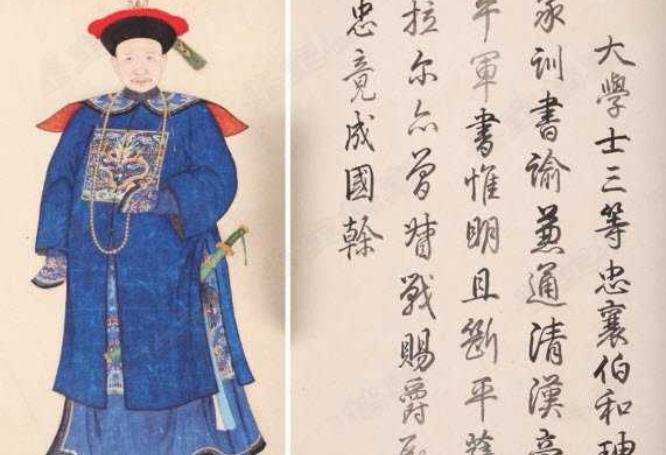 大學士三等忠襄伯和珅
承訓書諭兼通清漢
午軍書惟明且斷平薩
拉爾亦曾督戰賜爵
忠竟成國幹